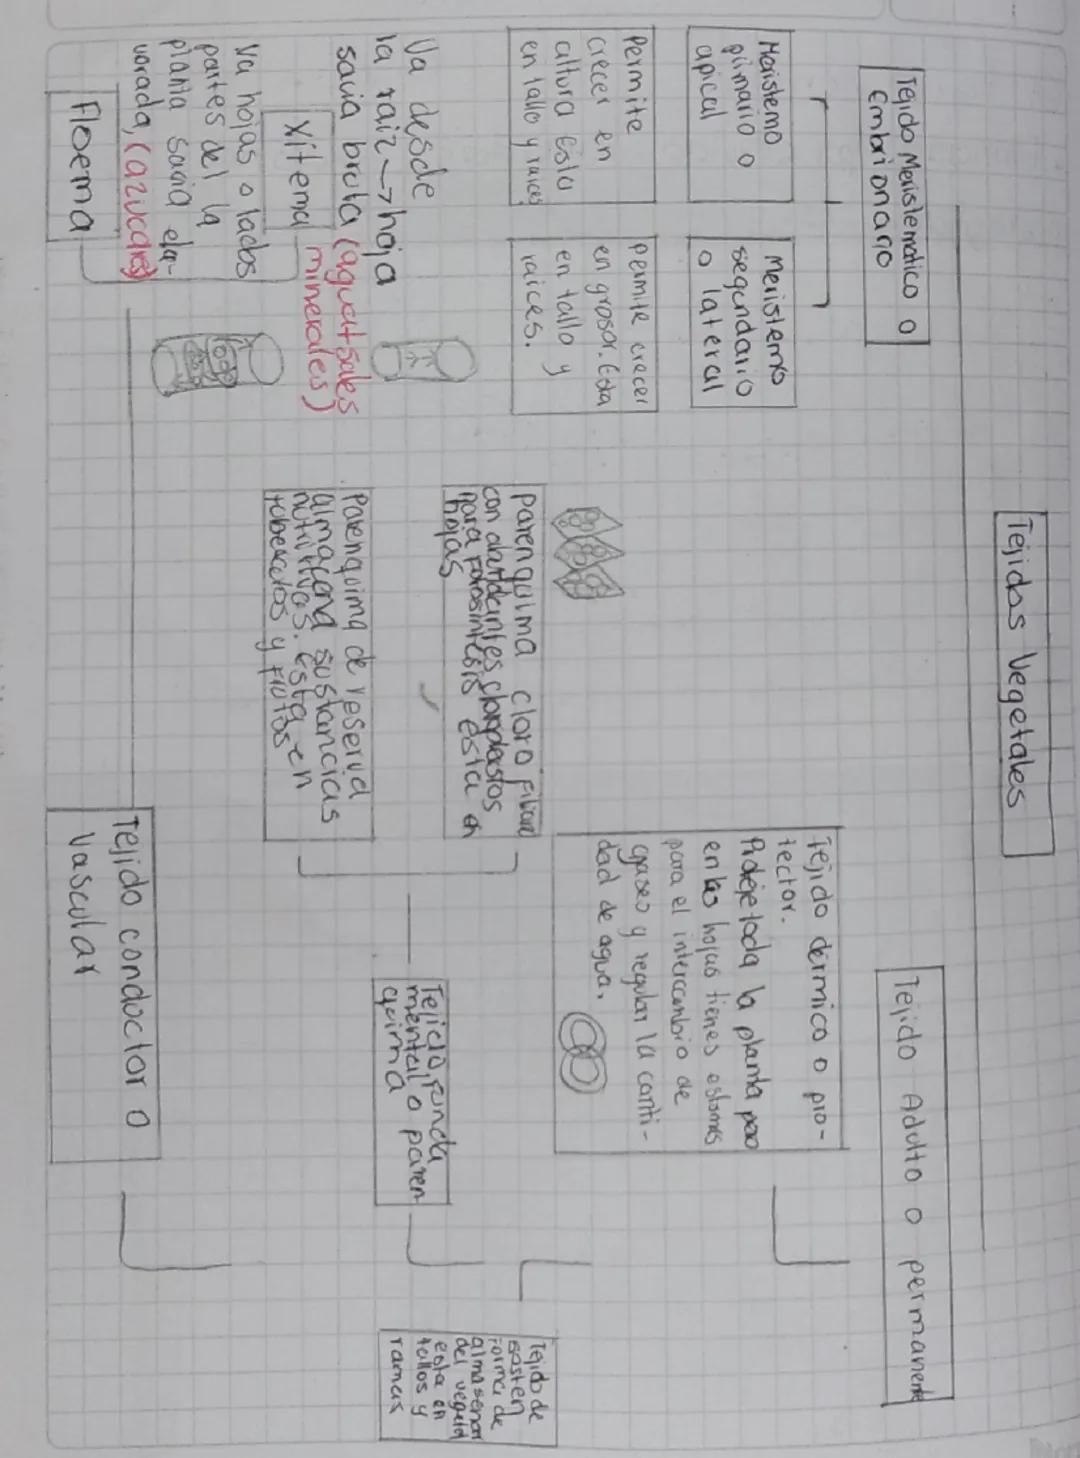 Tejidos Vegetales
Tejido Meristematico o
Embrionario
Meristemo
primario o
apical
Meristemo
segundario
o lateral
Permite
crecer en
altura Esta
en tallo y raices
Permite crecer
en grosor. Esta
en tallo y
raices.
Tejido Adulto o permanente
Tejido dermico o pro-
tector.
Proteje toda la planta pero
en las hojas tienes estomas
para el intercambio de
gases y regular la canti-
dad de agua.
Tejido de
sosten
Forma de
almasenar
del vegetal
esta en
tallos y
ramas
Tejido Funda
mental o paren
quima
parenquima cloro filiano
con abundantes cloroplastos
para Fotosintesis esta en
hojas
Parenquima de reserva
almacena sustancias
nutritivas. Esta en
tuberculos y Frutos
Tejido conductor o
Vascular
Va desde
la raiz → hoja
savia bruta (agua+sales
minerales)
Xilema
Va hojas o lados
partes del la
planta savia ela-
vorada, (azucares)
Floema